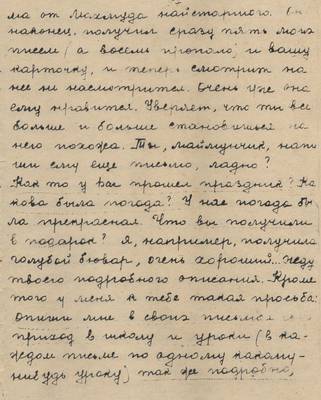 ма от Махмуда найстаршого. Он
наконец, получил сразу пять моих
писем (а восемь пропало) и вашу
карточку, и теперь смотрит на
нее не насмотрится. Очень уже она
ему нравится. Уверяет, что ты все
больше и больше становишься на
него похожа. Ты, маймунчик, напи
ши ему еще письмо, ладно?
Как то у вас прошел праздник? Ка
кова была погода? У нас погода бы
ла прекрасная. Что вы получили
в подарок? Я, например, получила
голубой бювар, очень хороший... Жду
твоего подробного описания. Кроме
того у меня к тебе такая просьба:
опиши мне в своих письмах
приход в школу и уроки (в ка-
ждом письме по одному какому-
нибудь уроку) так же подробно,